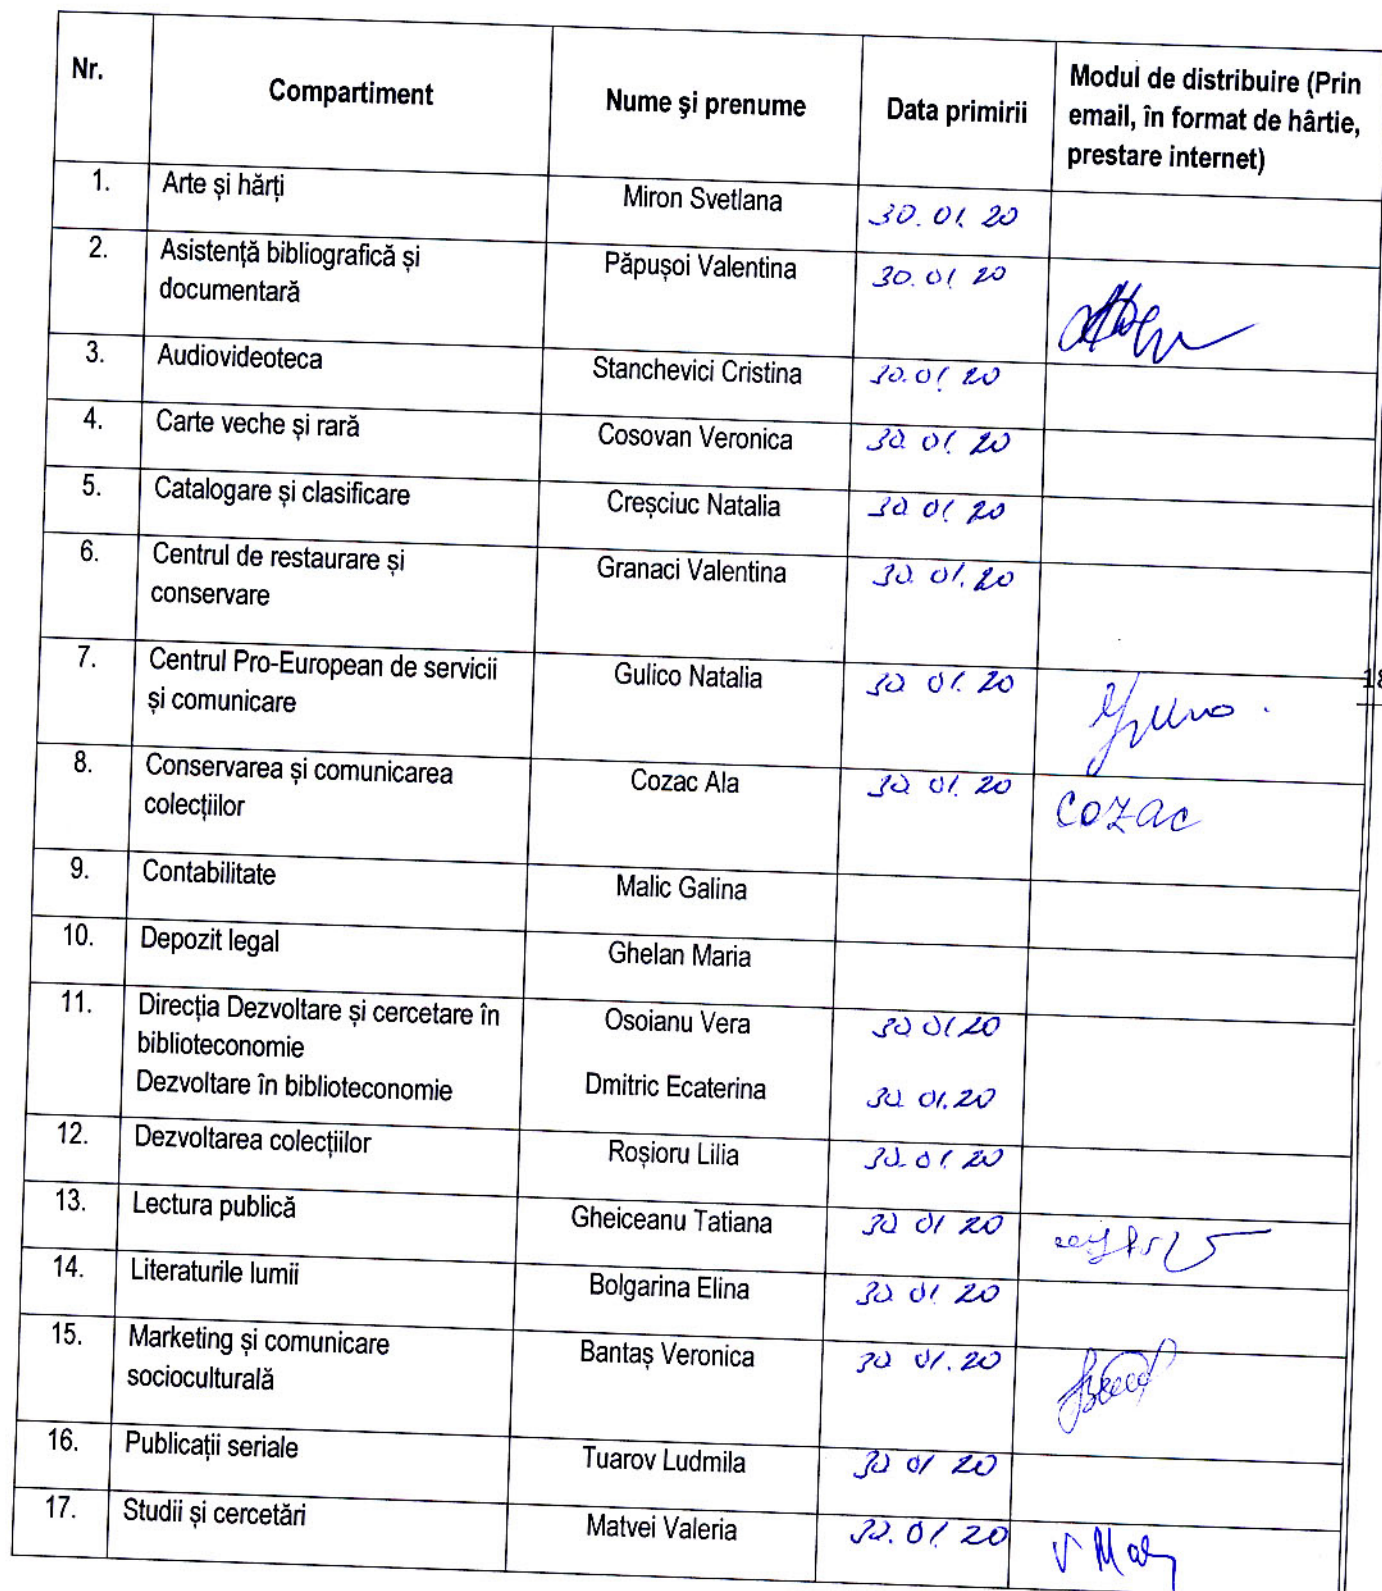 Nr.
Compartiment
Nume şi prenume
Data primirii
Modul de distribuire (Prin
email, în format de hârtie,
prestare internet)
1. Arte și hărți Miron Svetlana 30.01.20
2. Asistență bibliografică și Păpușoi Valentina 30.01.20
documentară
3. Audiovideoteca Stanchevici Cristina 30.01.20
4. Carte veche și rară Cosovan Veronica 30.01.20
5. Catalogare și clasificare Creșciuc Natalia 30.01.20
6. Centrul de restaurare și Granaci Valentina 30.01.20
conservare
7. Centrul Pro-European de servicii Gulico Natalia 30.01.20
și comunicare
18
8. Conservarea și comunicarea Cozac Ala 30.01.20 Cozac
colecțiilor
9. Contabilitate Malic Galina
10. Depozit legal Ghelan Maria
11. Direcția Dezvoltare și cercetare în Osoianu Vera 30.01.20
biblioteconomie
Dezvoltare în biblioteconomie Dmitric Ecaterina 30.01.20
12. Dezvoltarea colecțiilor Roșioru Lilia 30.01.20
13. Lectura publică Gheiceanu Tatiana 30 01 20
14. Literaturile lumii Bolgarina Elina 30.01.20
15. Marketing și comunicare Bantaș Veronica 30 01.20
socioculturală
16. Publicații seriale Tuarov Ludmila 30 01 20
17. Studii și cercetări Matvei Valeria 30.01.20